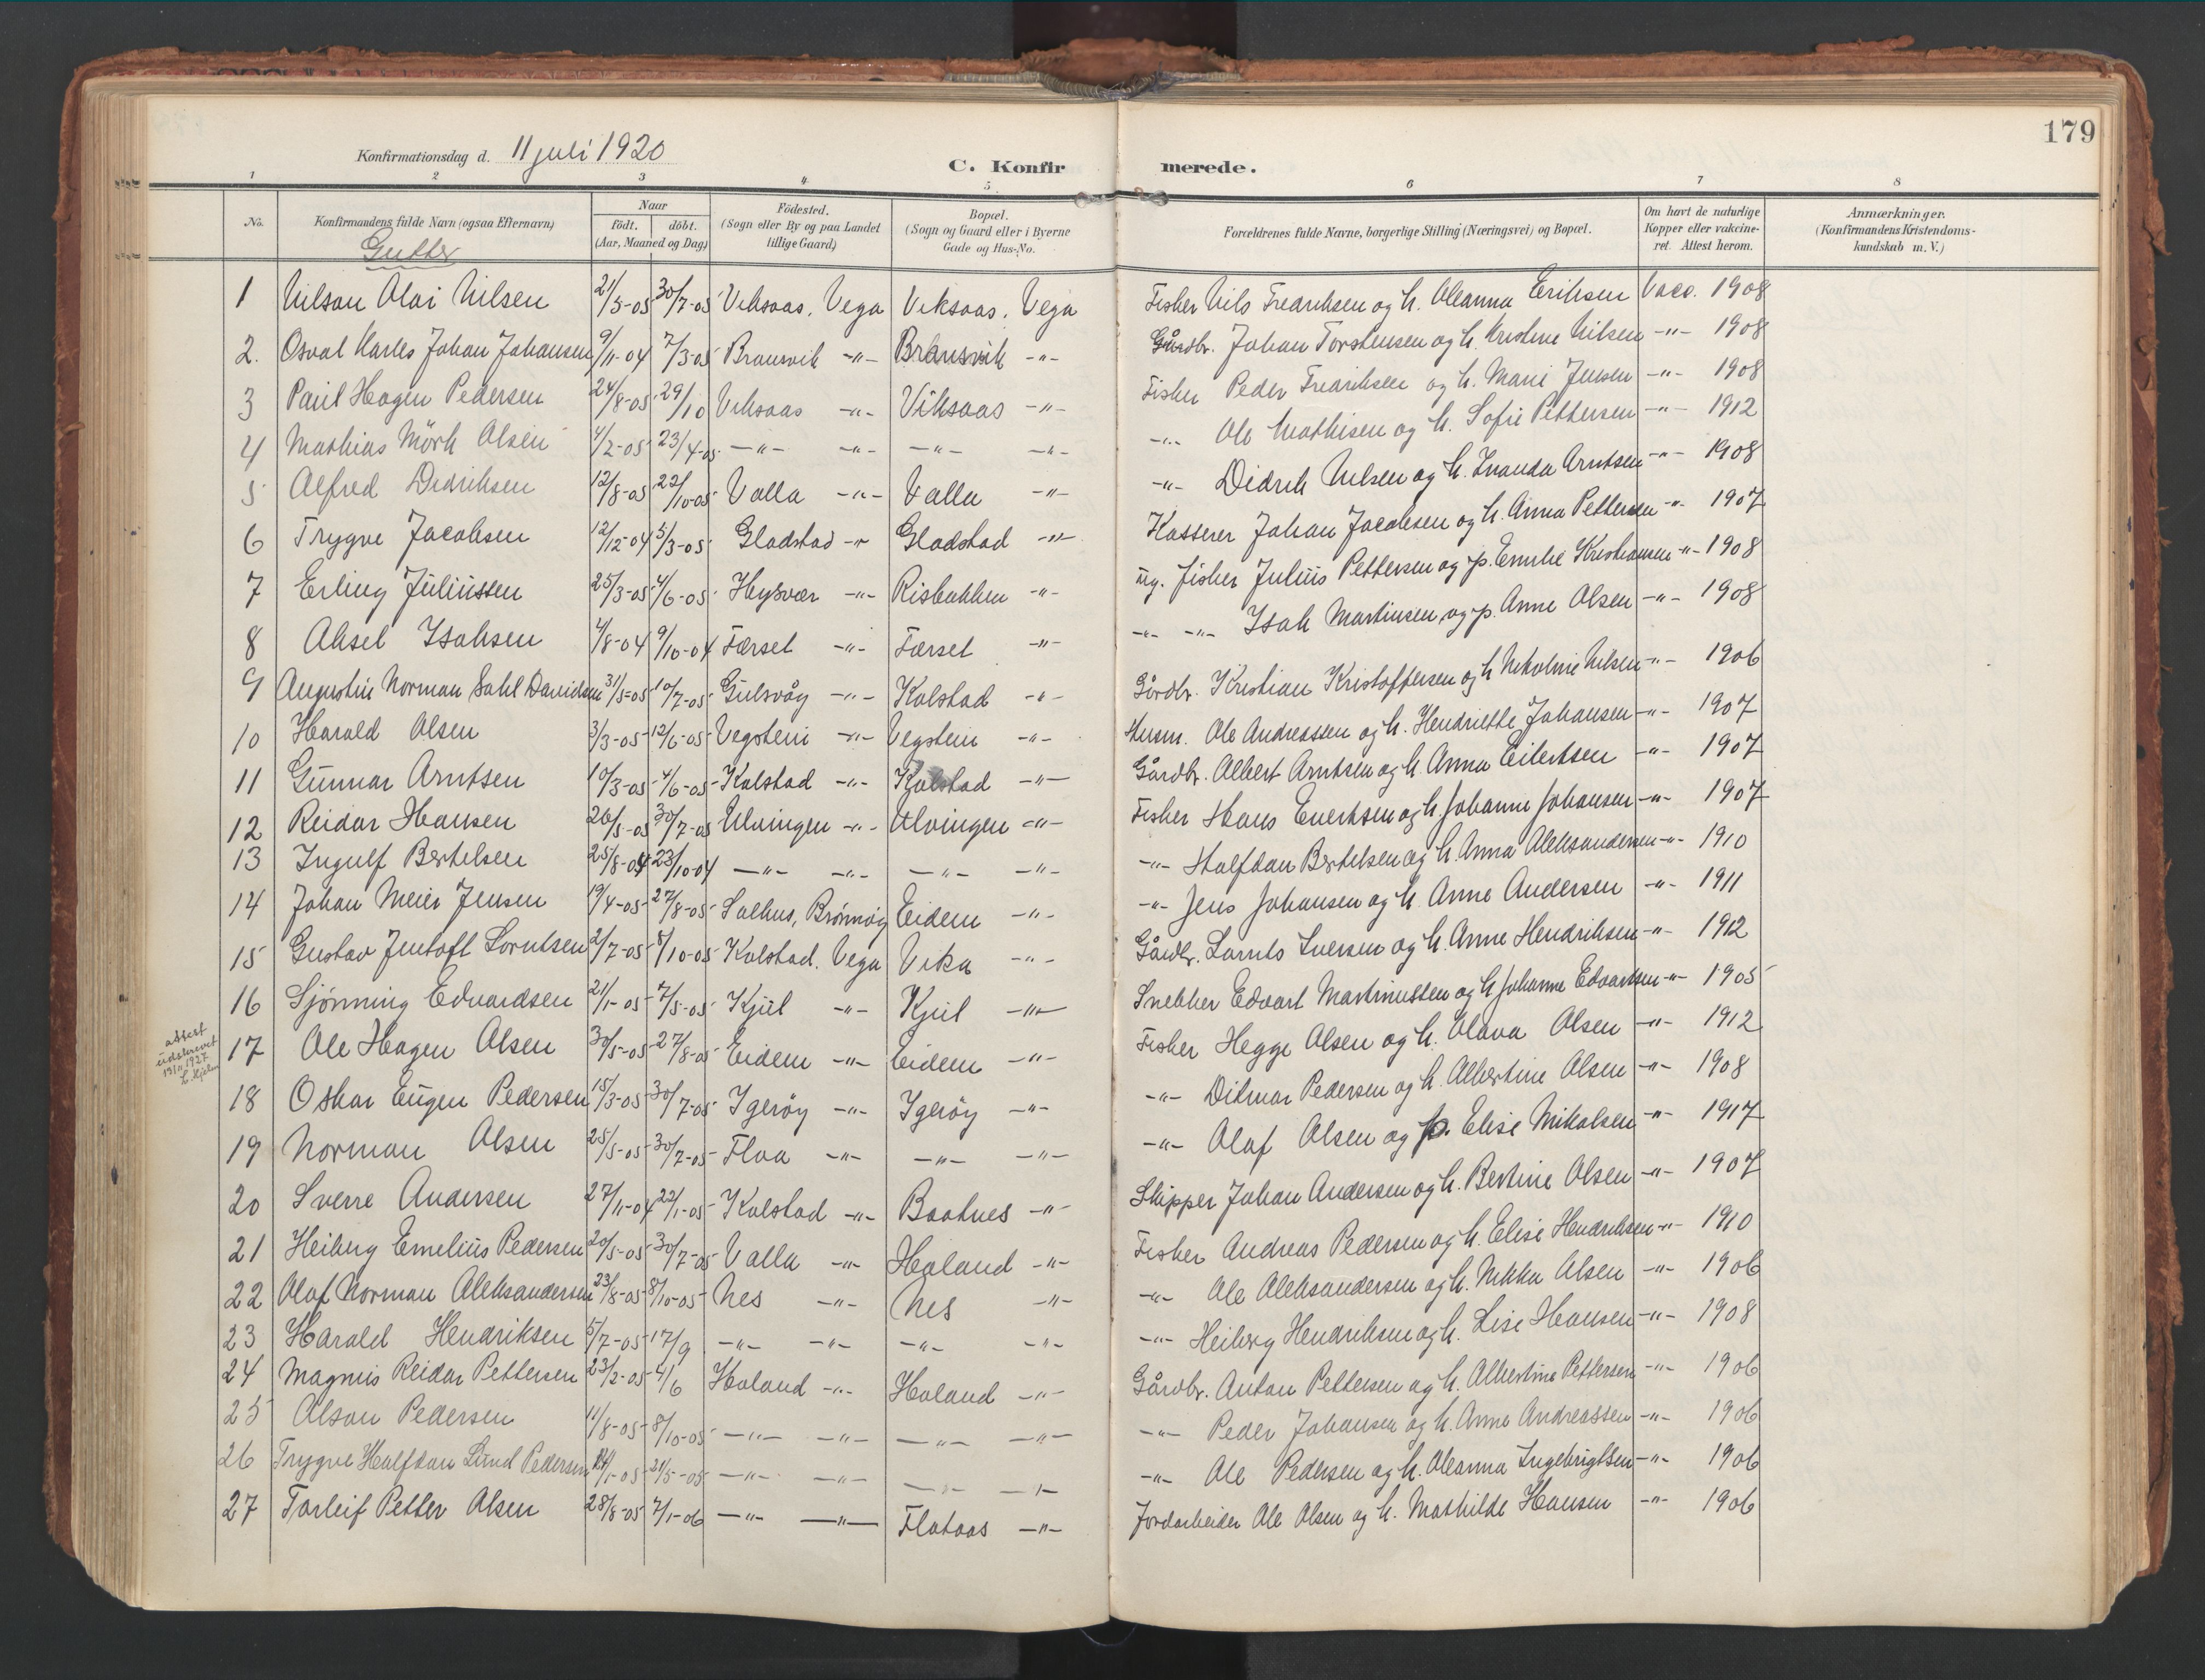 179
Konfirmationsdag d. 11 juli 1920
C. Konfirmerede.
1 2 3 4 5 6 7 8
No. Konfirmandens fulde Navn (ogsaa Efternavn) Naar födt. döbt. (Aar, Maaned og Dag) Födested. (Sogn eller By og paa Landet tillige Gaard) Bopæl. (Sogn og Gaard eller i Byerne Gade og Hus-No. Forældrenes fulde Navne, borgerlige Stilling (Næringsvei) og Bopæl. Om havt de naturlige Kopper eller vakcineret. Attest herom. Anmærkninger. (Konfirmandens Kristendomskundskab m. V.)
Gutter
1 Nilson Olai Nilsen 21/5-05 30/7-05 Viksaas, Vega Viksaas, Vega Fisker Nils Fredriksen og h. Oleanna Eriksen Vacc. 1908
2. Osval Karles Johan Johansen 9/11-04 7/3-05 Bransvik -"- Bransvik -"- Gårdbr. Johan Torstensen og h. Kristine Nilsen -"- 1908
3 Paul Hagen Pedersen 24/8-05 29/10 Viksaas -"- Viksaas -"- Fisker Peder Fredriksen og h. Marie Jensen -"- 1908
4 Mathias Mörk Olsen 4/2-05 23/4-05 -"- -"- -"- -"- -"- Ole Mathisen og h. Sofie Pettersen -"- 1912
5 Alfred Didriksen 12/8-05 22/10-05 Valla -"- Valla -"- -"- Didrik Nilsen og h. Iranda Arntsen -"- 1908
6 Trygve Jacobsen 12/12-04 5/3-05 Gladstad -"- Gladstad -"- Kasserer Johan Jacobsen og h. Anna Pettersen -"- 1907
7 Erling Juliussen 25/3-05 4/6-05 Hysvær -"- Risbakken -"- ug. fisker Julius Pettersen og p. Emilie Kristiansen -"- 1908
8 Aksel Isaksen 4/8-04 9/10-04 Færset -"- Færset -"- -"- -"- Isak Martinsen og p. Anne Olsen -"- 1908
9 Augustin Norman Dahl Davidsen 31/5-05 10/7-05 Gulsvåg -"- Kolstad -"- Gårdbr. Kristian Kristoffersen og h Nikoline Nilsen -"- 1906
10 Harald Olsen 3/3-05 12/6-05 Vegstein -"- Vegstein -"- Husm. Ole Andreassen og h. Hendriette Johansen -"- 1907
11 Gunnar Arntsen 10/3-05 4/6-05 Kolstad -"- Kolstad -"- Gårdbr. Albert Arntsen og h. Anna Eilertsen -"- 1907
12 Reidar Hansen 26/5-05 30/7-05 Ulvingen -"- Ulvingen -"- Fisker Hans Evertsen og h. Johanne Johansen -"- 1907
13 Ingulf Bertelsen 25/8-04 23/10-04 -"- -"- -"- -"- -"- Halfdan Bertelsen og h. Anna Aleksandersen -"- 1910
14 Johan Meier Jensen 19/4-05 27/8-05 Salhus, Brönnöy Eidem -"- -"- Jens Johansen og h. Anne Andersen -"- 1911
15 Gustav Jentoft Lorntsen 2/7-05 8/10-05 Kolstad. Vega Vika -"- Gårdbr. Lornts Iversen og h. Anne Hendriksen -"- 1912
16 Sjönning Edvardsen 21/1-05 7/5-05 Kjul -"- Kjul -"- Snekker Edvart Martinussen og h Johanne Edvartsen -"- 1905
attest udskrevet 13/11 1927
17 Ole Hagen Olsen 30/5-05 27/8-05 Eidem -"- Eidem -"- Fisker Hegge Olsen og h. Olava Olsen -"- 1912
18 Oskar Eugen Pedersen 15/3-05 30/7-05 Igeröy -"- Igeröy -"- -"- Ditmar Pedersen og h. Albertine Olsen -"- 1908
19 Norman Olsen 25/5-05 30/7-05 Floa -"- -"- -"- -"- Olaf Olsen og p. Elise Mikalsen -"- 1917
20 Sverre Andersen 27/11-04 22/1-05 Kolstad -"- Baatnes -"- Skipper Johan Andersen og h. Bertine Olsen -"- 1907
21 Heiberg Emelius Pedersen 20/5-05 30/7-05 Valla -"- Holand -"- Fisker Andreas Pedersen og h. Elise Hendriksen -"- 1910
22 Olaf Norman Aleksandersen 23/8-05 8/10-05 Nes -"- Nes -"- -"- Ole Aleksandersen og h. Nikka Olsen -"- 1906
23 Harald Hendriksen 5/7-05 17/9 -"- -"- -"- -"- -"- Heiberg Hendriksen og h. Lise Hansen -"- 1908
24 Magnus Reidar Pettersen 23/2-05 4/6 Holand -"- Holand -"- Gårdbr. Anton Pettersen og h. Albertine Pettersen -"- 1906
25 Olson Pedersen 11/8-05 8/10-05 -"- -"- -"- -"- -"- Peder Johansen og h. Anne Andreassen -"- 1906
26 Trygve Halfdan Lund Pedersen 14/1-05 21/5-05 -"- -"- -"- -"- -"- Ole Pedersen og h. Oleanna Ingebrigtsen -"- 1906
27 Torleif Petter Olsen 28/8-05 7/1-06 -"- -"- Flotaas -"- Jordarbeider Ole Olsen og h. Mathilde Hansen -"- 1906